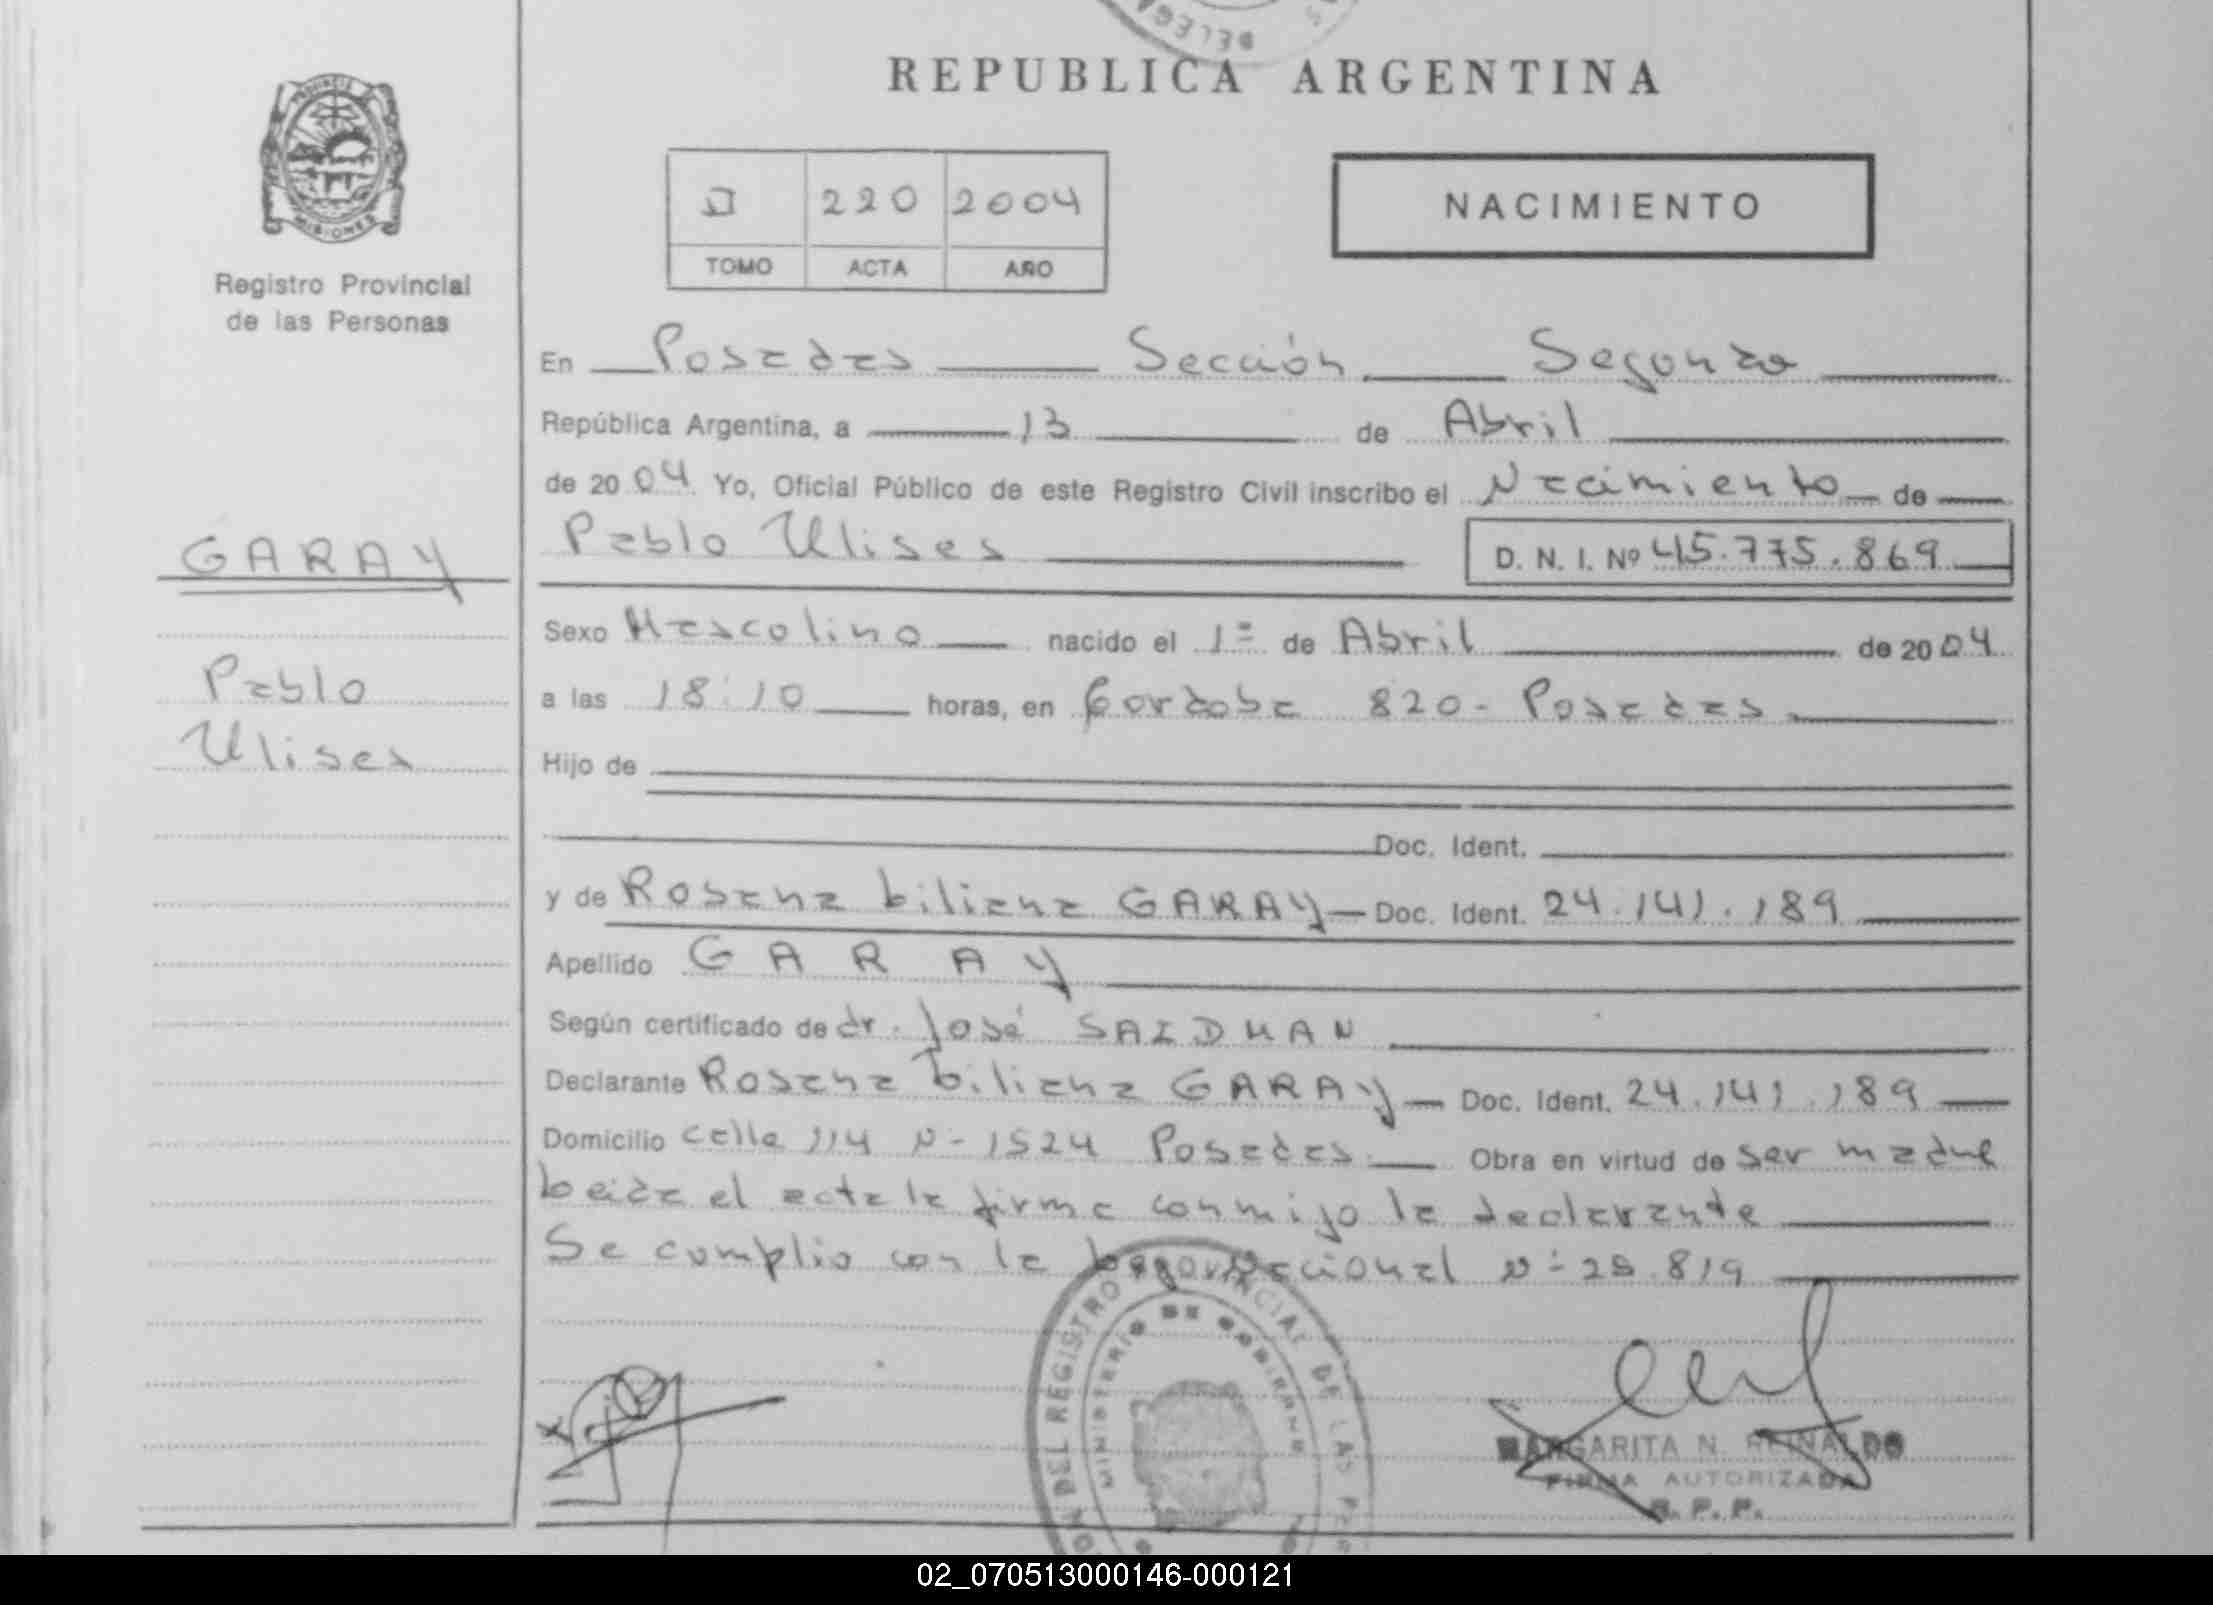 REPUBLICA ARGENTINA
PROVINCIA DE MISIONES
Registro Provincial
de las Personas
220 2004
TOMO ACTA AÑO
NACIMIENTO
En Posadas Sección Segunda
República Argentina, a 13 de Abril
de 2004 Yo, Oficial Público de este Registro Civil inscribo el Nacimiento de
GARAY
Pablo Ulises D. N. I. Nº 45.775.869
Sexo Masculino nacido el 1º de Abril de 2004
Pablo
Ulises
a las 18:10 horas, en Cordoba 820- Posadas
Hijo de
Doc. Ident.
y de Rosana Liliana GARAY Doc. Ident. 24.141.189
Apellido GARAY
Según certificado de dr. José SAIDMAN
Declarante Rosana Liliana GARAY Doc. Ident. 24.141.189
Domicilio calle 114 Nº 1524 Posadas Obra en virtud de ser madre
Leida el acta la firma conmigo la declarante
Se cumplio con la Nacional Nº 25.819
DEL REGISTRO PROVINCIAL DE LAS
MINISTERIO DE GOBIERNO
MARGARITA N. REINALDO
FIRMA AUTORIZADA
R. P. P.
02_070513000146-000121